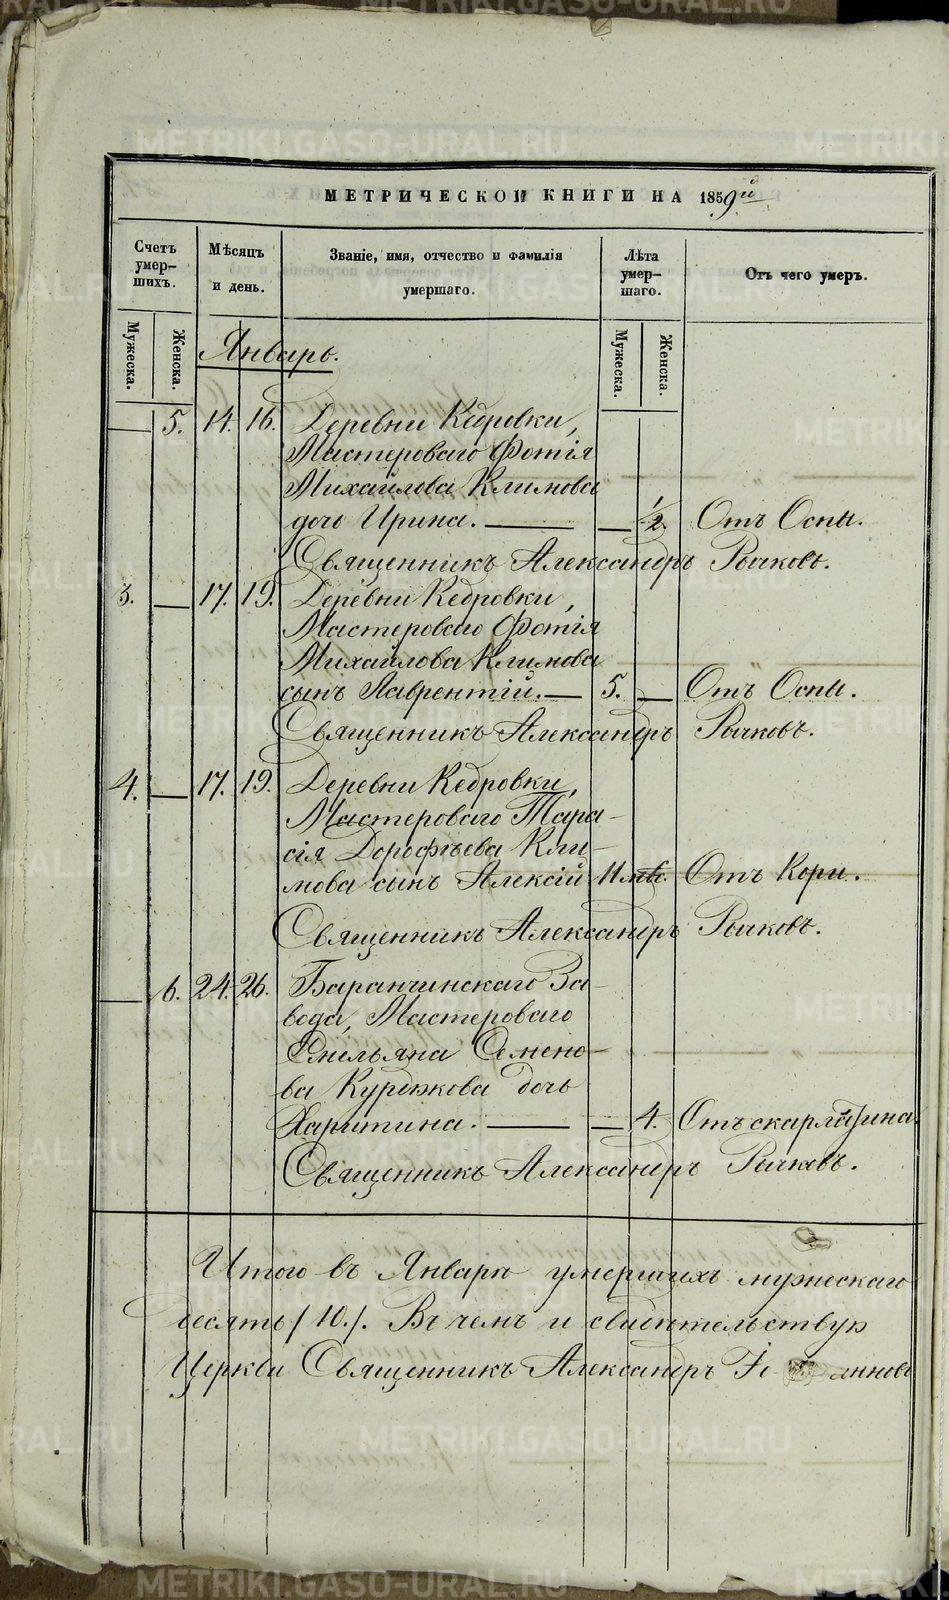 МЕТРИЧЕСКОЙ КНИГИ НА 1859й
Счетъ умер-шихъ.
Мѣсяцъ и день.
Званіе, имя, отчество и фамилія умершаго.
Лѣта умер-шаго.
Отъ чего умеръ.
Мужеска. Женска. Мужеска. Женска.
Январь.
— 5. 14. 16. Деревни Кедровки,
Мастероваго Фотія
Михайлова Климова
дочь Ирина. — — 1/2. Отъ Оспы.
Священникъ Александръ Рычковъ.
3. — 17. 19. Деревни Кедровки,
Мастероваго Фотія
Михайлова Климова
сынъ Лаврентій. — 5. — Отъ Оспы.
Священникъ Александръ Рычковъ.
4. — 17. 19. Деревни Кедровки,
Мастероваго Тара-
сія Дорофѣева Кли-
мова сынъ Алексій 11 мѣс. Отъ Кори.
Священникъ Александръ Рычковъ.
— 6. 24. 26. Баранчинскаго За-
вода, Мастероваго
Емельяна Семено-
ва дочь
Харитина. — — 4. Отъ скарлатина.
Священникъ Александръ Рычковъ.
Итого въ Январѣ умершихъ мужескаго
десять /10./. Въ чемъ и свидѣтельствую
Церкви Священникъ Александръ
METRIKI.GASO-URAL.RU